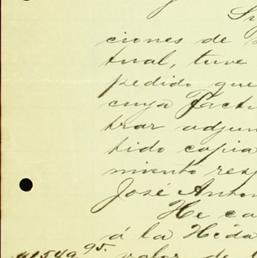 Su
ciones de
tual, tuve
pedido que
cuya fact
trar adjun
tido copia
miento resp
José Anton
He ca
á la Hda
$1549 95. valor de